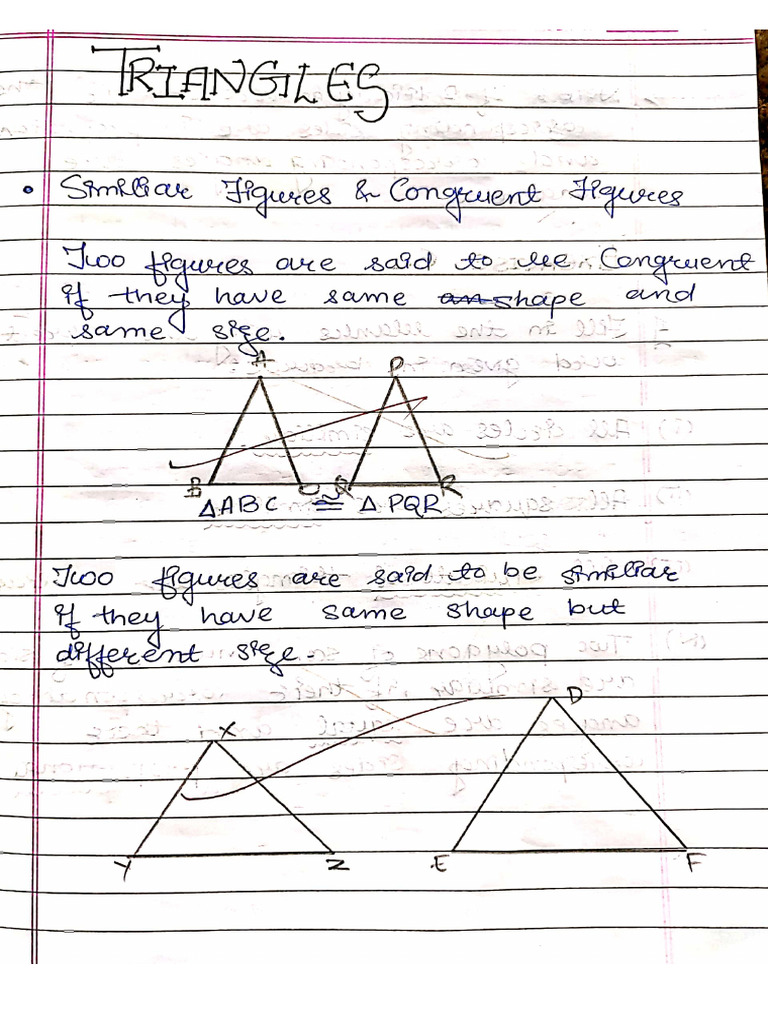 TRIANGLES
• Similiar Figures & Congruent Figures
Two figures are said to be Congruent
if they have same shape and
same size.
A P
B C Q R
△ABC ≅ △PQR
Two figures are said to be similiar
if they have same shape but
different size.
X D
Y Z E F